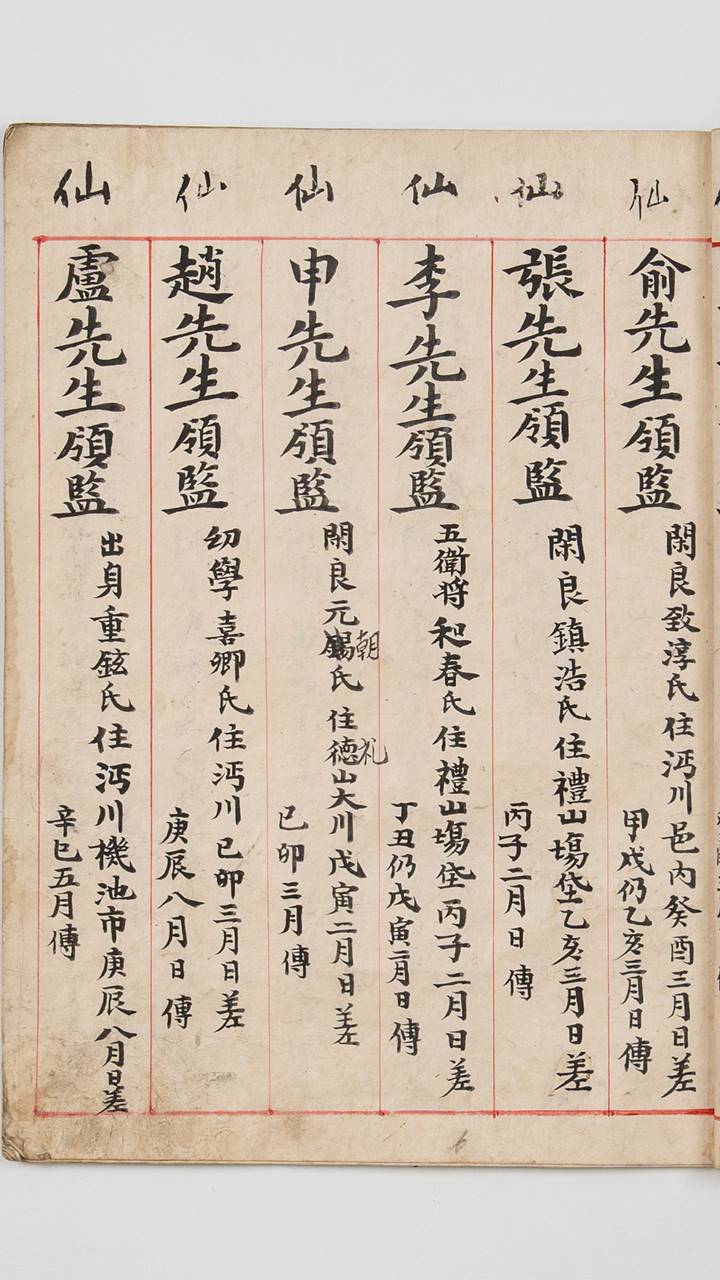 仙
俞先生領監
閑良致淳氏住沔川邑內癸酉三月日差
甲戌仍乙亥三月日傳
仙
張先生領監
閑良鎮浩氏住禮山塲垈乙亥三月日差
丙子二月日傳
仙
李先生領監
五衛将和春氏住禮山塲垈丙子二月日差
丁丑仍戊寅二月日傳
仙
申先生領監
閑良元錫氏住德山大川戊寅二月日差
朝
礼
己卯三月傳
仙
趙先生領監
幼學喜卿氏住沔川己卯三月日差
庚辰八月日傳
仙
盧先生領監
出身重鉉氏住沔川機池市庚辰八月日差
辛巳五月傳